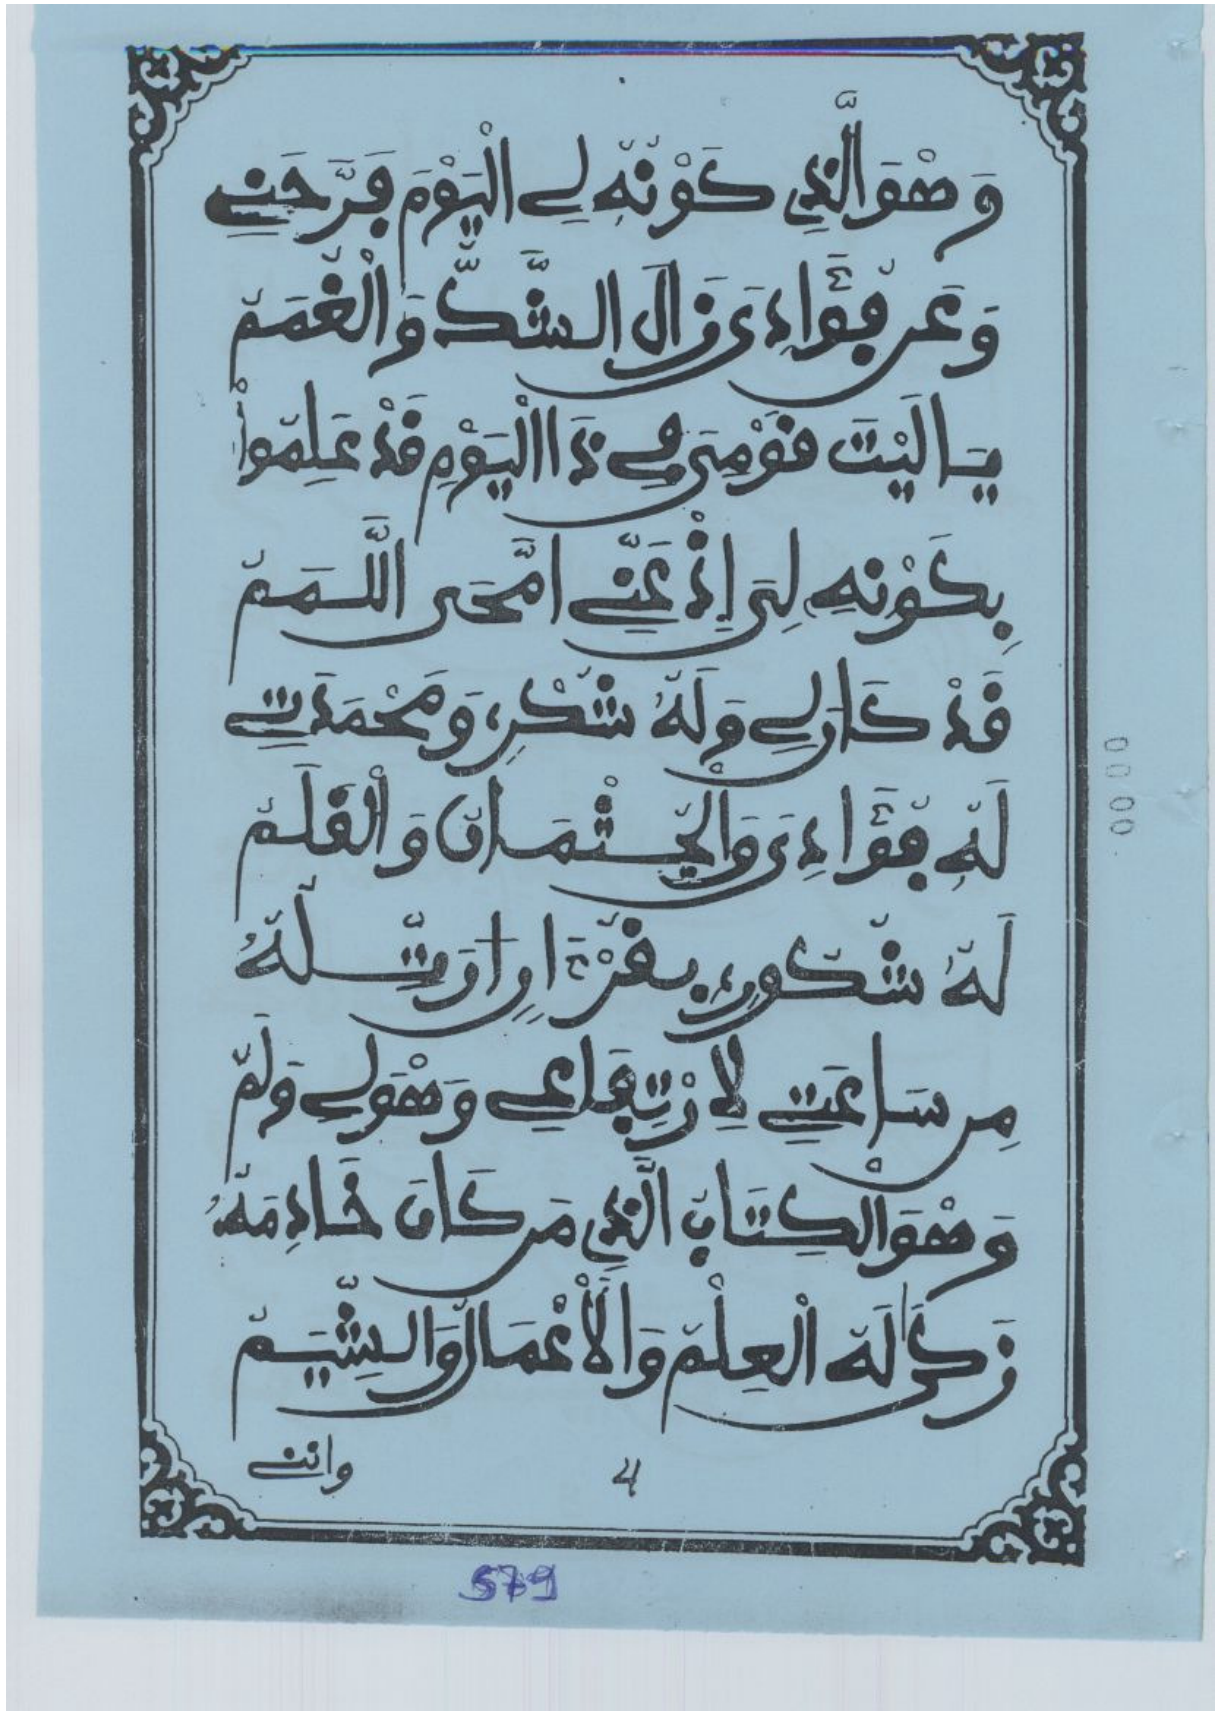 وَهْوَ الَّذِي كَوْنُهُ لِي الْيَوْمَ فَرَّحَنِي
وَعَن فُؤَادِيَ زَالَ الشَّكُّ وَالْغُمَمُ
يَا لَيْتَ قَوْمِيَ فِي ذَا الْيَوْمِ قَدْ عَلِمُوا
بِكَوْنِهِ لِيَ إِذْ عَنِّي امَّحَى اللَّمَمُ
قَدْ كَانَ لِي وَلَهُ شُكْرِي وَمَحْمَدَتِي
لَهُ فُؤَادِيَ وَالْجُثْمَانُ وَالْقَلَمُ
لَهُ شُكُورِي بِقُرْءَانٍ
مِن سَاعَتِي لِارْتِفَاعِي وَهْوَ لِي وَلَمُ
وَهْوَ الْكِتَابُ الَّذِي مَن كَانَ خَادِمَهُ
زَكَى لَهُ الْعِلْمُ وَالْأَعْمَالُ وَالشِّيَمُ
وانني
4
579
00 00